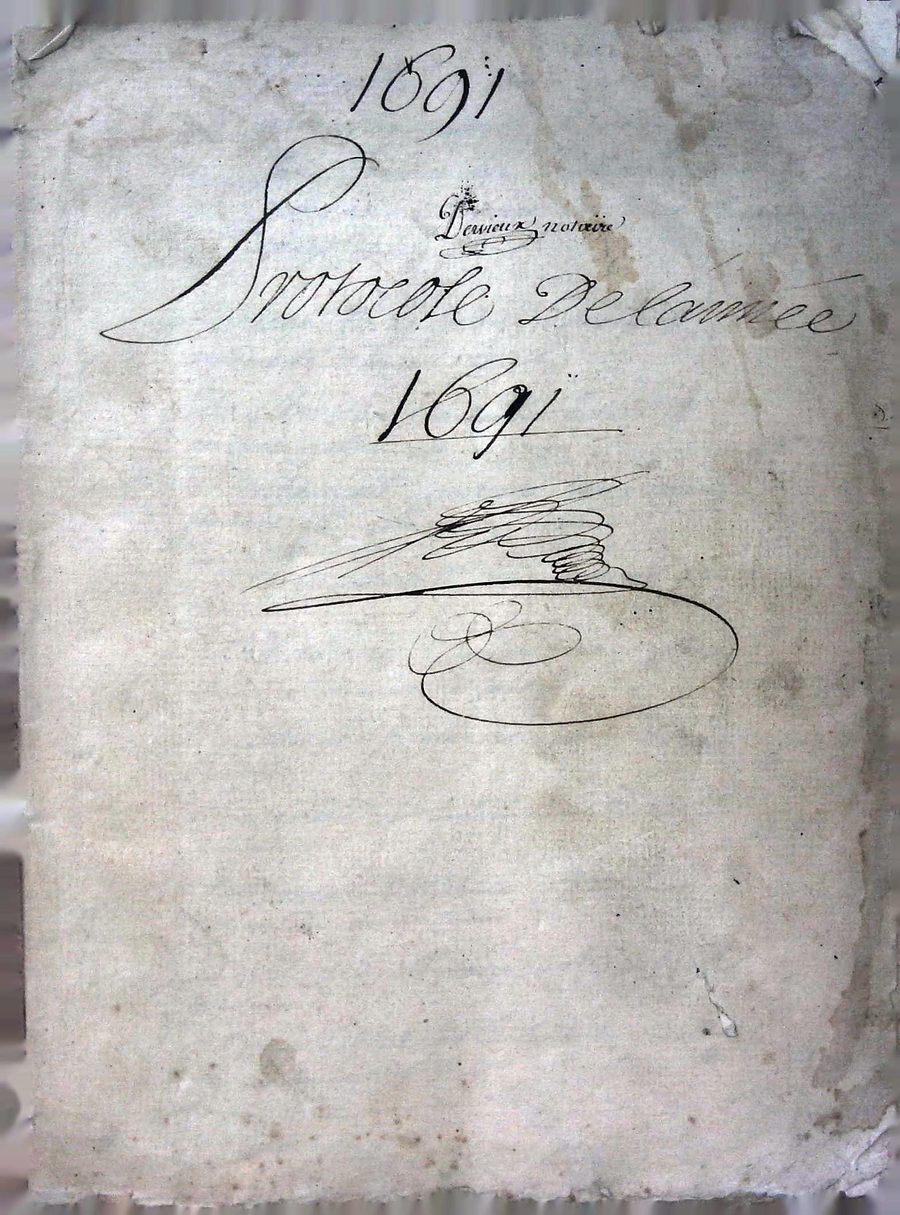 1691
Dervieux notaire
Protocole De lannée
1691